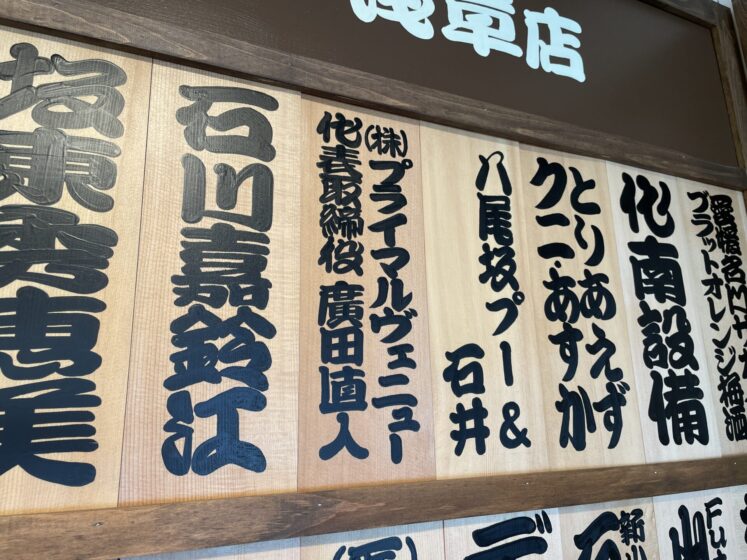 浅草店
愛媛名MTサ
ブラットオレンジ梅酒
化南設備
とりあえず
クニ・あすか
八尾坂プー&
石井
(株)プライマルヴェニュー
代表取締役 廣田直人
石川嘉鈴江
坂東秀恵美
Fut
山
新川
石
デ